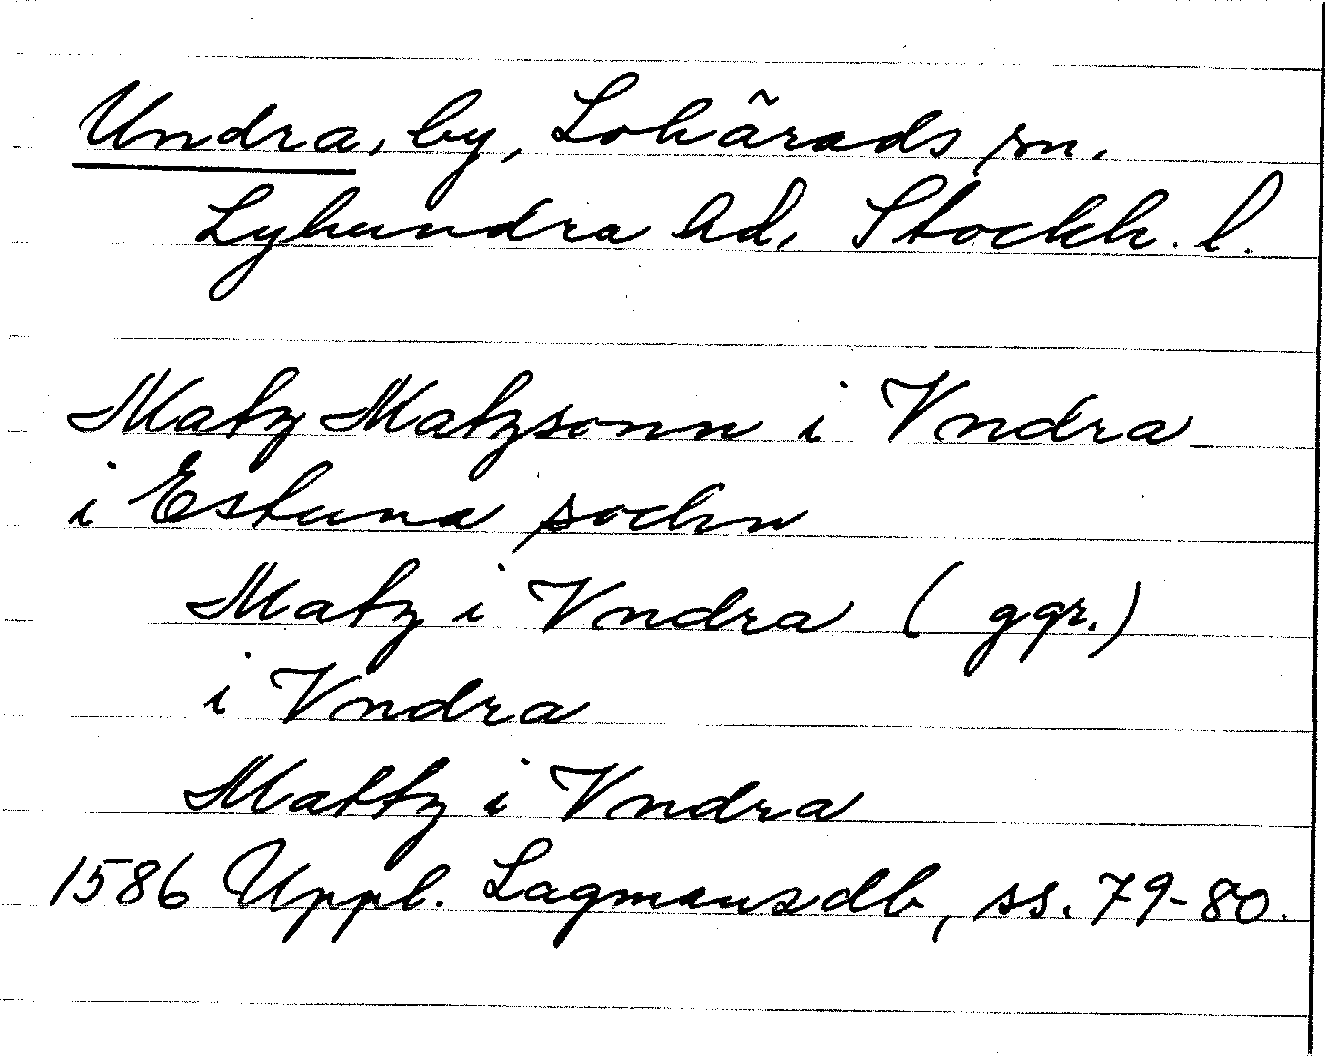 Undra, by, Lohärads sn.
Lyhundra hd, Stockh. l.
Matz Matzsonn i Vndra
i Estuna sochn
Matz i Vndra (ggr.)
i Vndra
Mattz i Vndra
1586 Uppl. Lagmansdb, ss. 79-80.